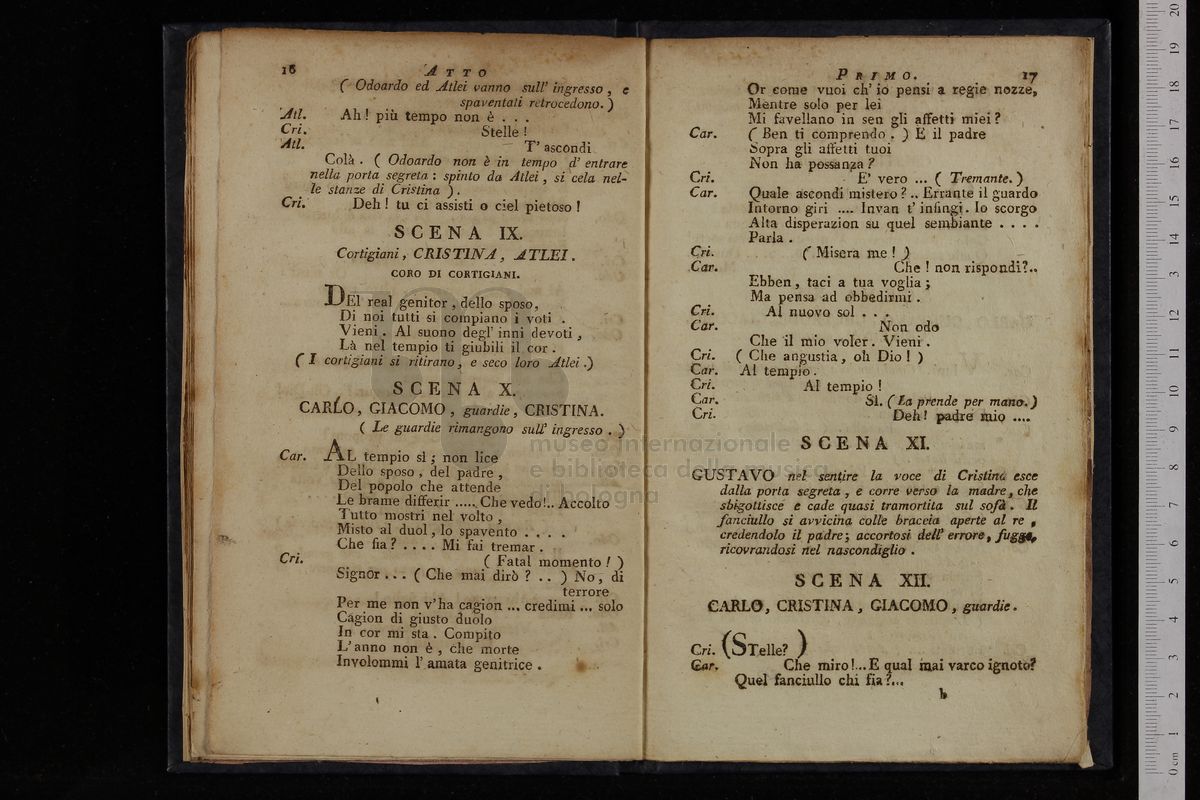 16 ATTO
( Odoardo ed Atlei vanno sull' ingresso , e
spaventati retrocedono. )
Atl. Ah! più tempo non è . . .
Cri. Stelle !
Atl. T' ascondi
Colà . ( Odoardo non è in tempo d' entrare
nella porta segreta : spinto da Atlei , si cela nel-
le stanze di Cristina ) .
Cri. Deh ! tu ci assisti o ciel pietoso !
SCENA IX.
Cortigiani , CRISTINA , ATLEI .
CORO DI CORTIGIANI.
DEl real genitor , dello sposo,
Di noi tutti si compiano i voti .
Vieni . Al suono degl' inni devoti ,
Là nel tempio ti giubili il cor .
( I cortigiani si ritirano , e seco loro Atlei .)
SCENA X.
CARLO, GIACOMO , guardie , CRISTINA.
( Le guardie rimangono sull' ingresso . )
Car. AL tempio sì ; non lice
Dello sposo , del padre ,
Del popolo che attende
Le brame differir ..... Che vedo!.. Accolto
Tutto mostri nel volto ,
Misto al duol , lo spavento . . . .
Che fia ? . . . . Mi fai tremar .
Cri. ( Fatal momento ! )
Signor . . . ( Che mai dirò ? . . ) No , di
terrore
Per me non v'ha cagion ... credimi ... solo
Cagion di giusto duolo
In cor mi sta . Compito
L' anno non è , che morte
Involommi l' amata genitrice .
PRIMO. 17
Or come vuoi ch' io pensi a regie nozze,
Mentre solo per lei
Mi favellano in sen gli affetti miei ?
Car. ( Ben ti comprendo . ) E il padre
Sopra gli affetti tuoi
Non ha possanza ?
Cri. E' vero ... ( Tremante. )
Car. Quale ascondi mistero ? .. Errante il guardo
Intorno giri .... Invan t' infingi . Io scorgo
Alta disperazion su quel sembiante . . . .
Parla .
Cri. ( Misera me ! )
Car. Che ! non rispondi?..
Ebben , taci a tua voglia ;
Ma pensa ad obbedirmi .
Cri. Al nuovo sol . . .
Car. Non odo
Che il mio voler . Vieni .
Cri. ( Che angustia , oh Dio ! )
Car. Al tempio .
Cri. Al tempio !
Car. Sì. ( La prende per mano. )
Cri. Deh! padre mio ....
SCENA XI.
GUSTAVO nel sentire la voce di Cristina esce
dalla porta segreta , e corre verso la madre , che
sbigottisce e cade quasi tramortita sul sofà . Il
fanciullo si avvicina colle braccia aperte al re ,
credendolo il padre ; accortosi dell' errore , fugge,
ricovrandosi nel nascondiglio .
SCENA XII.
CARLO, CRISTINA , GIACOMO , guardie .
Cri. (STelle? )
Car. Che miro!... E qual mai varco ignoto?
Quel fanciullo chi fia ?...
b
museo internazionale
e biblioteca della musica
di bologna
0 cm 1 2 3 4 5 6 7 8 9 10 11 12 13 14 15 16 17 18 19 20